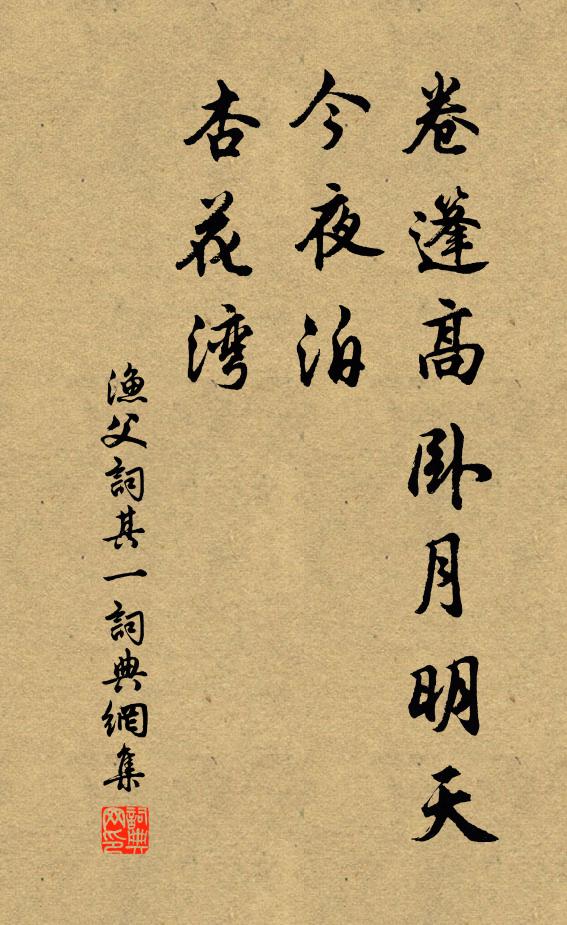 卷蓬高卧月明天
今夜泊
杏花湾
渔父詞其一詞典網集
詞典网印